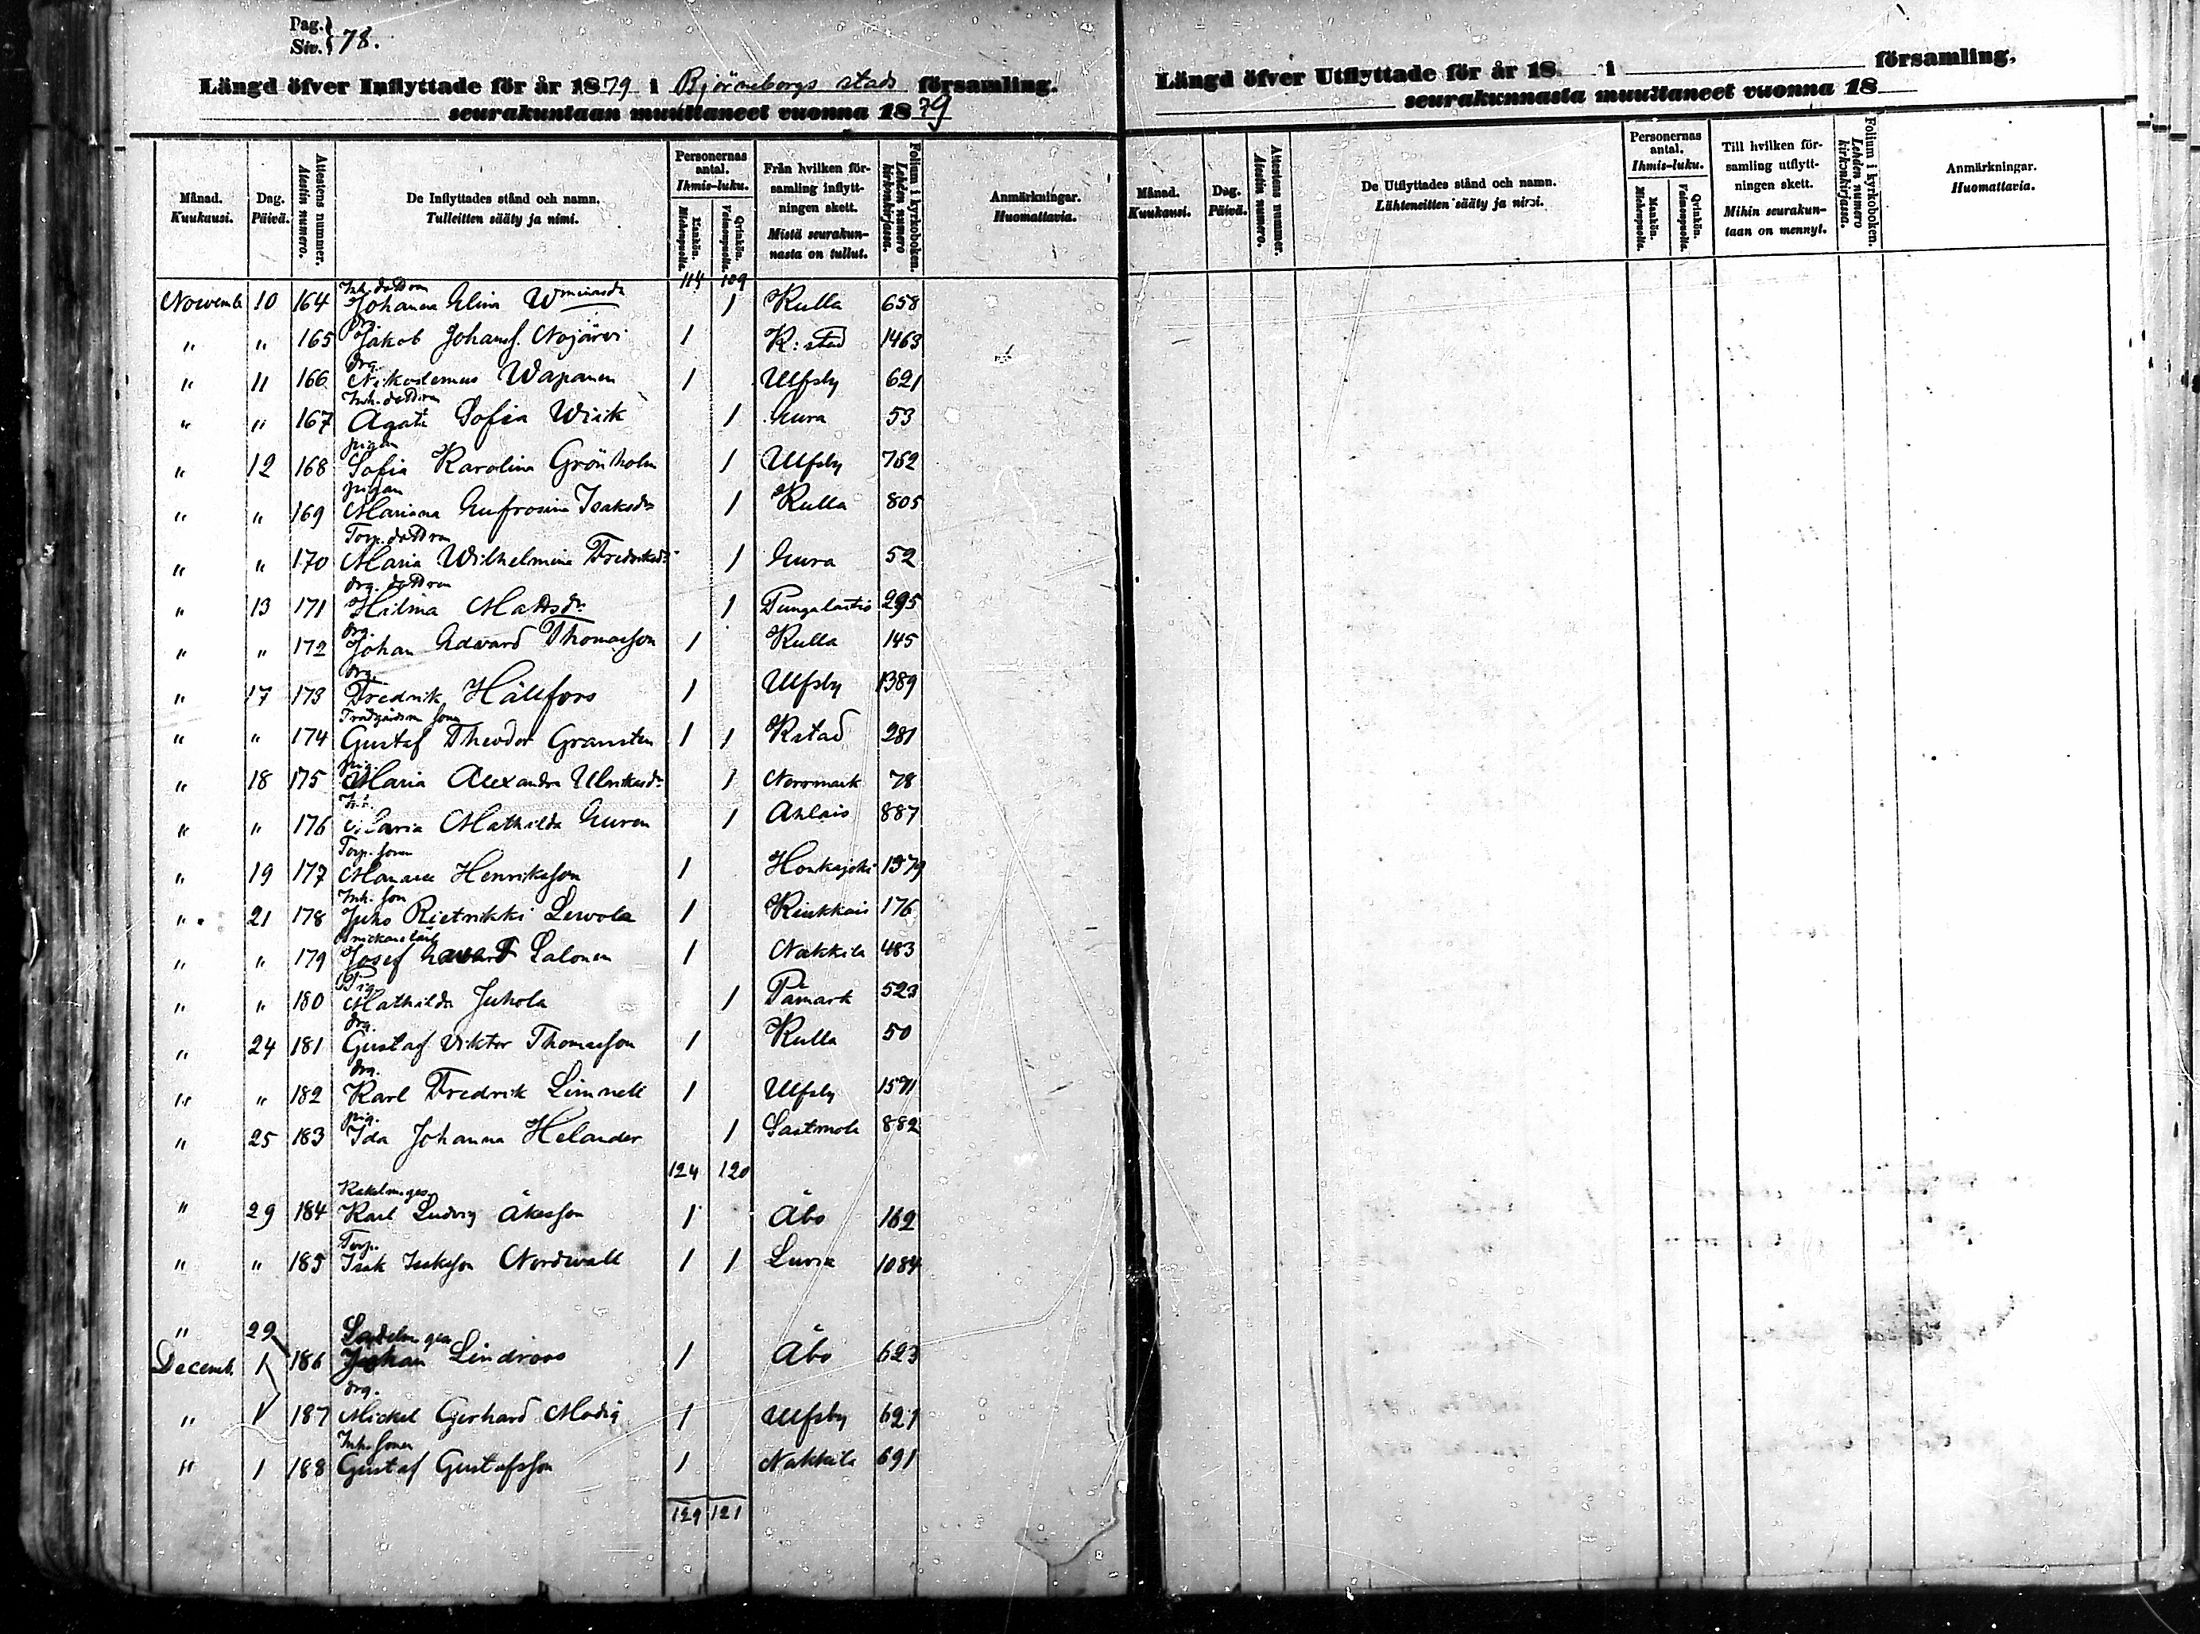 Pag. } 78.
Siv. }
Längd öfver Inflyttade för år 1879 i Björneborgs stads församling.
seurakuntaan muuttaneet vuonna 1879
Månad. Kuukausi.
Dag. Päivä.
Attestens nummer. Atestin numero.
De Inflyttades stånd och namn. Tulleitten sääty ja nimi.
Personernas antal. Ihmis-luku.
Mankön. Miehenpuolia.
Qvinkön. Vaimonpuolia.
Från hvilken församling inflyttningen skett. Mistä seurakunnasta on tullut.
Folium i kyrkoboken. Lehden numero kirkonkirjassa.
Anmärkningar. Huomattavia.
114 109
Inh. dottren
Novemb 10 164 Johanna Elina W 1 Kulla 658
drg.
" " 165 Jakob Johanss. Nojärvi 1 K: stad 1463
drg.
" 11 166 Nikodemus Wapanen 1 Ulfsby 621
Inh. dottren
" " 167 Agata Sofia Wiik 1 Eura 53
pigan
" 12 168 Sofia Karolina Grönholm 1 Ulfsby 752
pigan
" " 169 Mariana Eufrosina Isaksdr 1 Kulla 805
Torp. dottren
" " 170 Maria Wilhelmina Fredriksdr 1 Eura 52
drg. dottren
" 13 171 Hilma Mattsdr 1 Pungalaitio 295
drg.
" " 172 Johan Edvard Thomasson 1 Kulla 145
drg.
" 17 173 Fredrik Hällfors 1 Ulfsby 1389
" " 174 Gustaf Theodor Gransten 1 1 K stad 281
pig.
" 18 175 Maria Alexandra Ulriksdr 1 Norrmark 78
" " 176 Maria Mathilda Euren 1 Ahlais 887
Torp. sonen
" 19 177 Manasse Henriksson 1 Honkajoki 1379
Inh. son
" 21 178 Juho Rietrikki Lewola 1 Kiukkais 176
" " 179 Josef Edvard Salonen 1 Nakkila 483
Pig.
" " 180 Mathilda Juhola 1 Påmark 523
drg.
" 24 181 Gustaf Viktor Thomasson 1 Kulla 50
drg.
" " 182 Karl Fredrik Limnell 1 Ulfsby 1571
pig.
" 25 183 Ida Johanna Helander 1 Sastmola 882
124 120
" 29 184 Karl Ludvig Åkesson 1 Åbo 162
Torp.
" " 185 Isak Isaksson Nordwall 1 1 Luvia 1084
" 29 Sadelm. ges.
Decemb. 1 186 Johan Lindroos 1 Åbo 623
drg.
" 1 187 Mickel Gerhard Modig 1 Ulfsby 621
Inh. sonen
" 1 188 Gustaf Gustafsson 1 Nakkila 691
129 121
Längd öfver Utflyttade för år 18 i församling.
seurakunnasta muuttaneet vuonna 18
Månad. Kuukausi.
Dag. Päivä.
Attestens nummer. Atestin numero.
De Utflyttades stånd och namn. Lähteneitten sääty ja nimi.
Personernas antal. Ihmis-luku.
Mankön. Miehenpuolia.
Qvinkön. Vaimonpuolia.
Till hvilken församling utflyttningen skett. Mihin seurakuntaan on mennyt.
Folium i kyrkoboken. Lehden numero kirkonkirjassa.
Anmärkningar. Huomattavia.